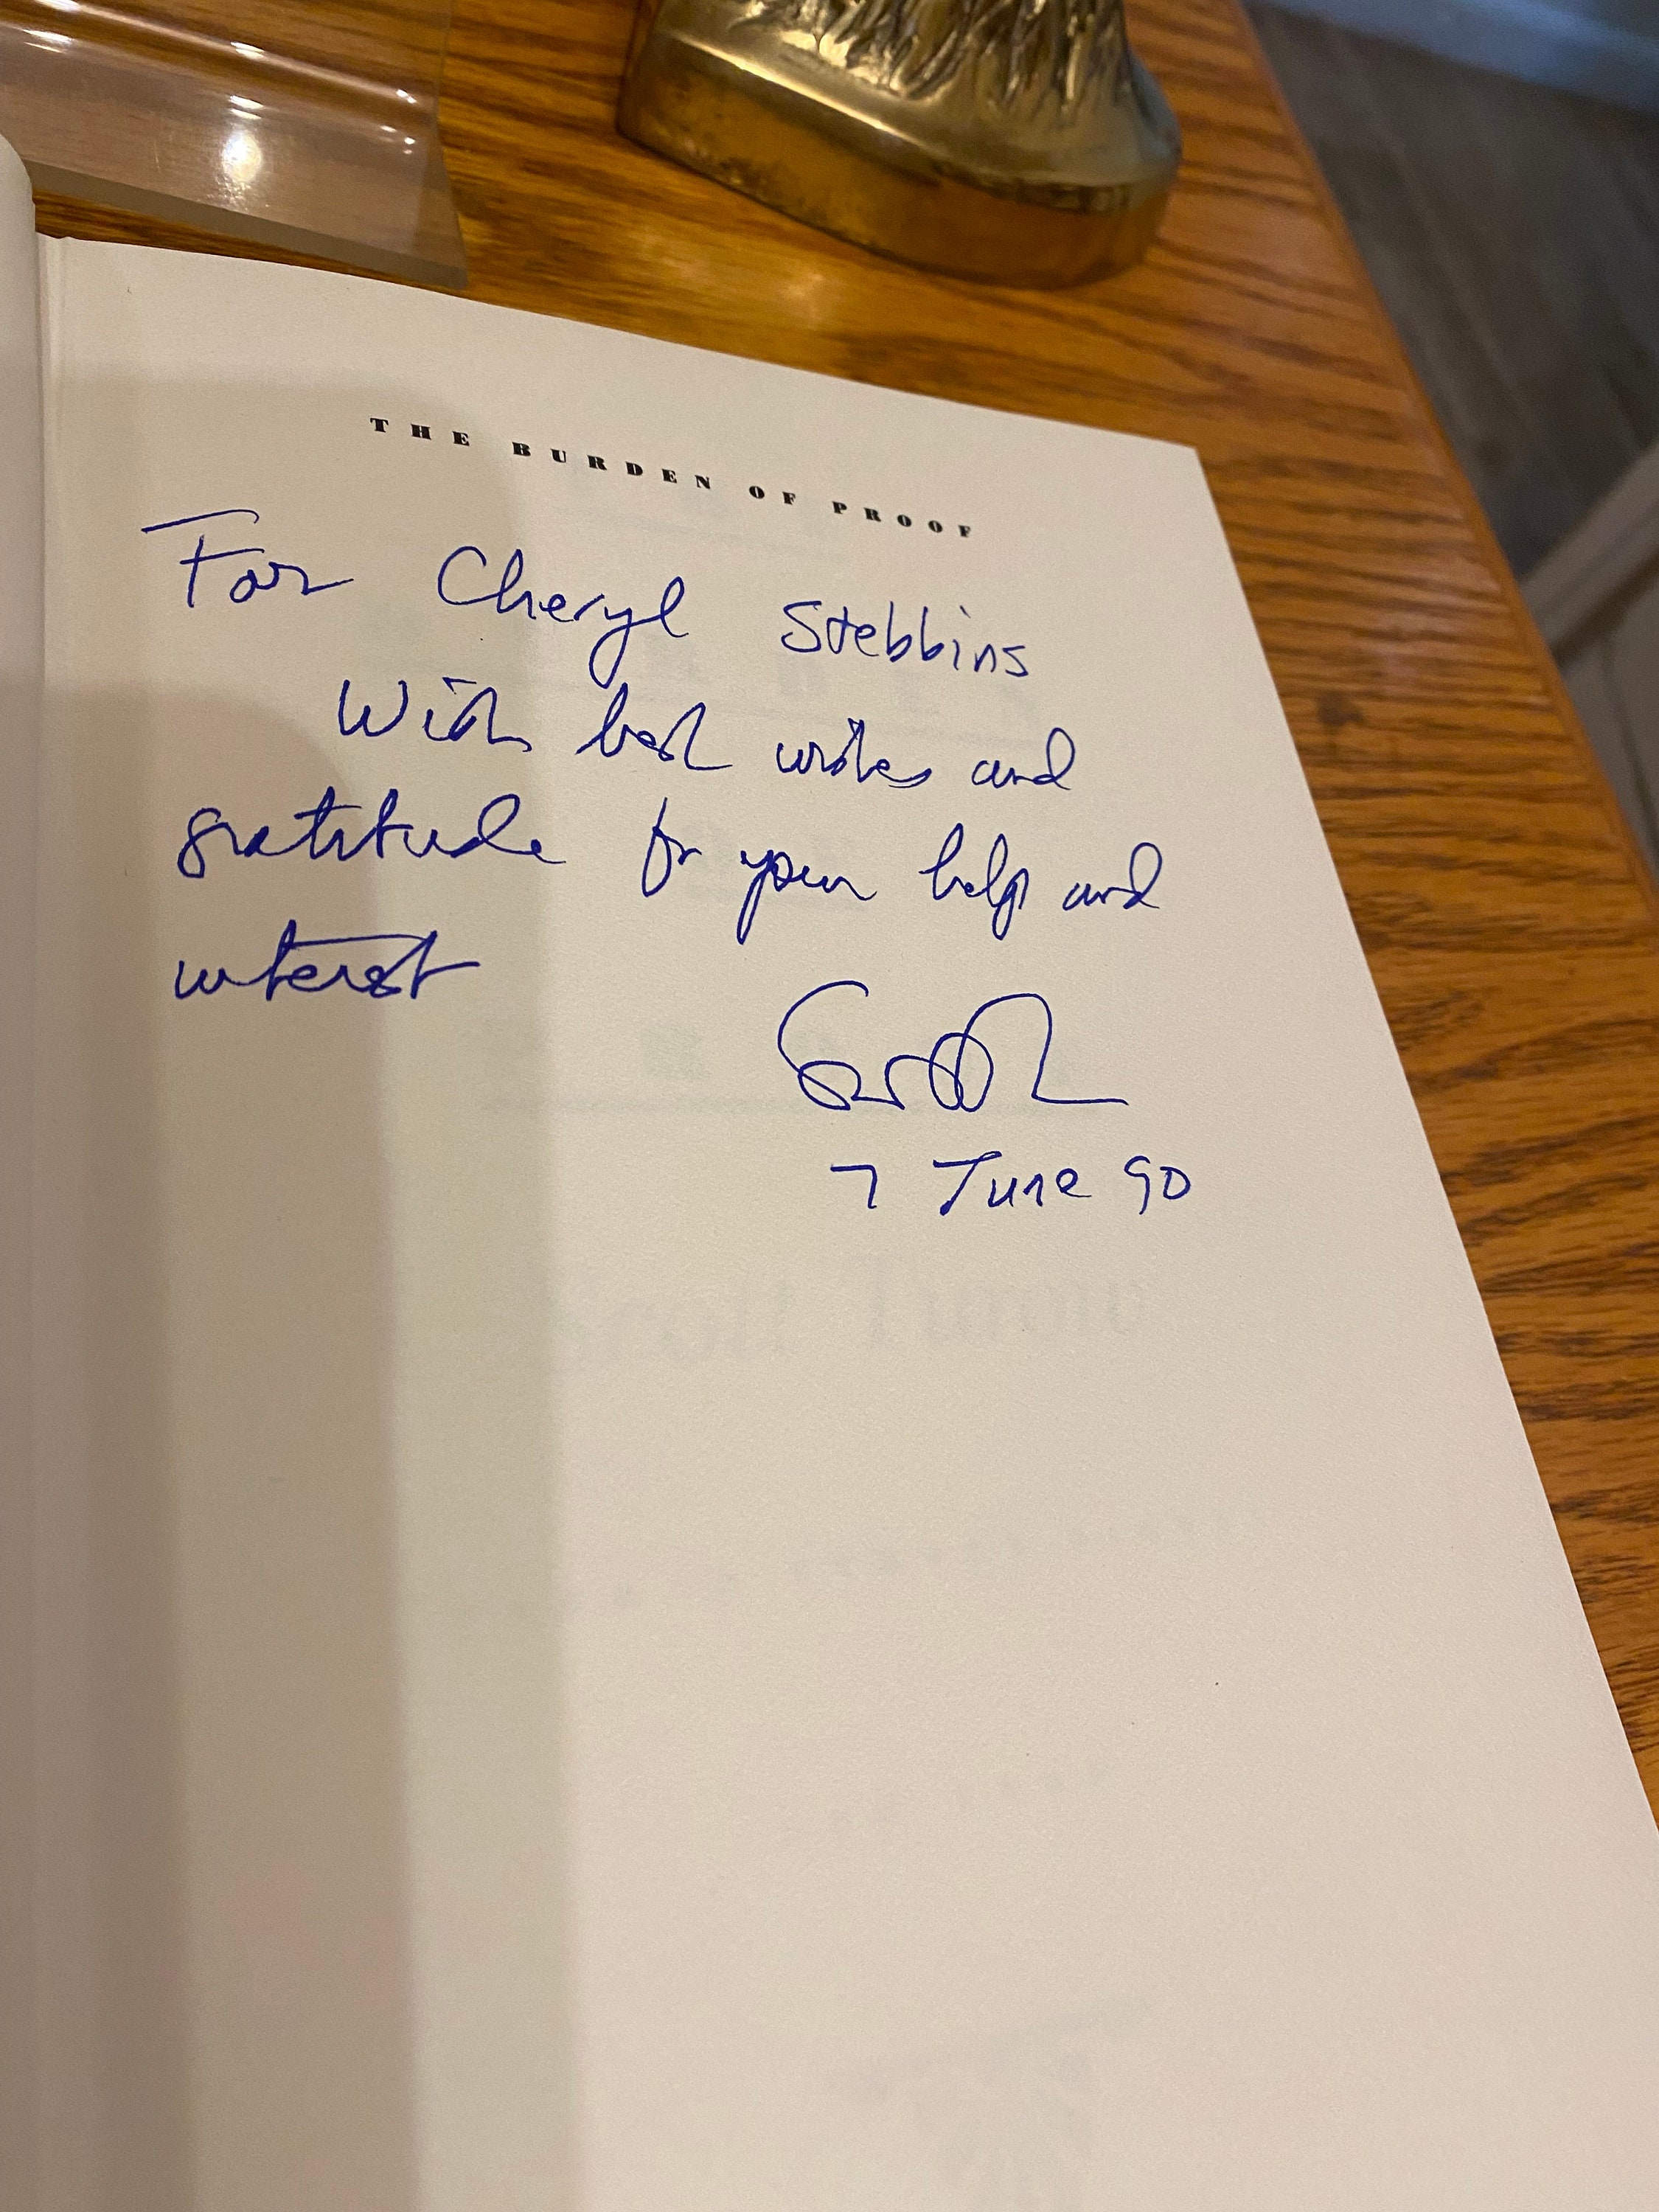 THE BURDEN OF PROOF
For Cheryl Stebbins
With best wishes and
gratitude for your help and
interest
7 June 90